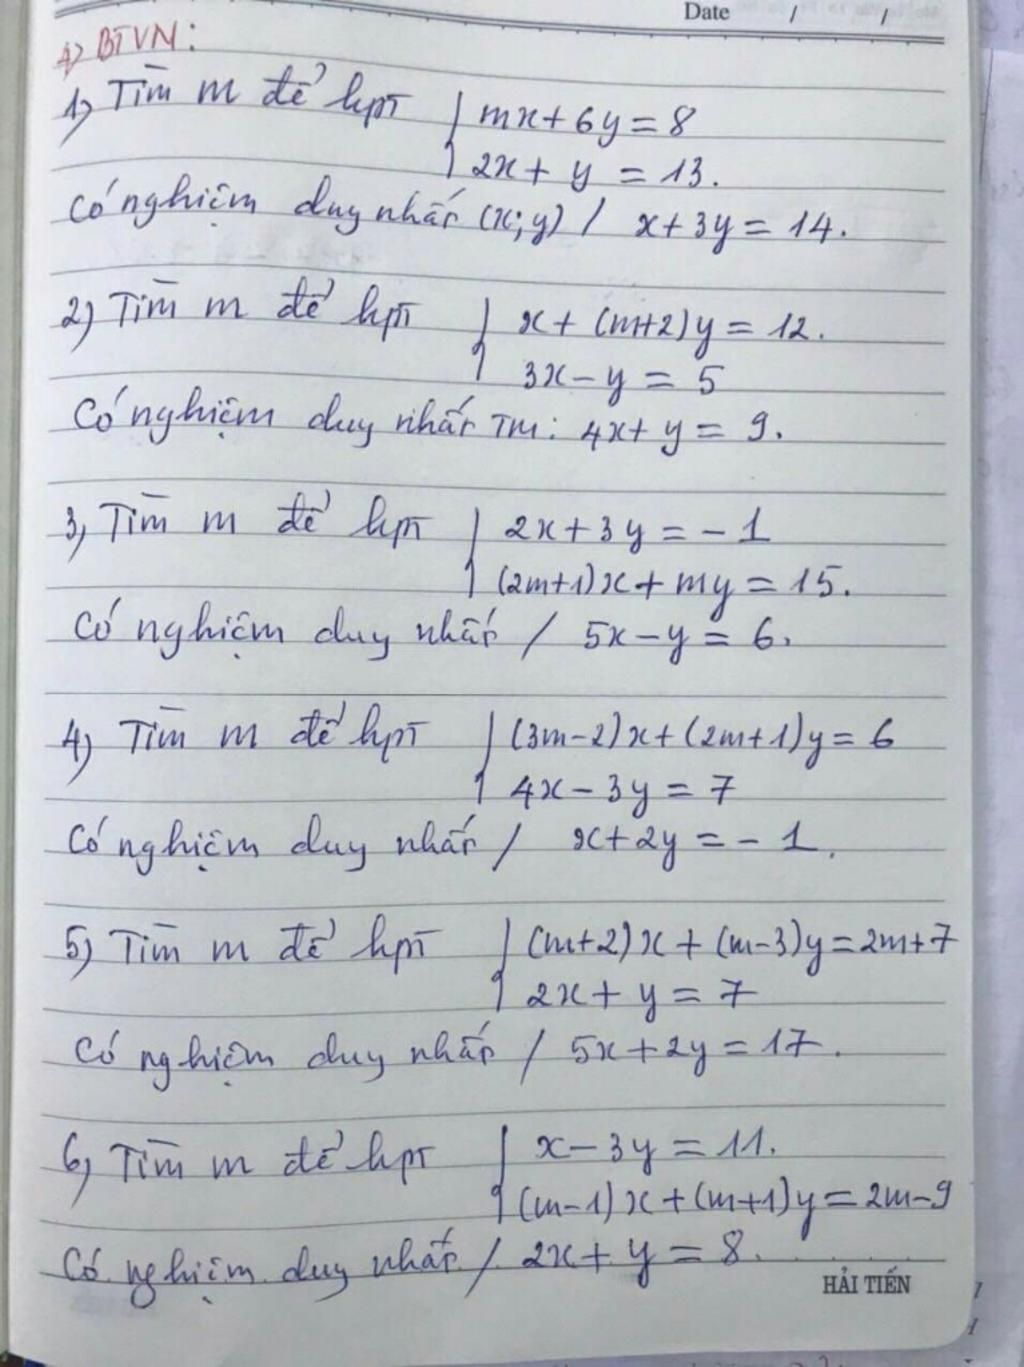 Date / /
A) BTVN:
1) Tìm m để hpt { mx + 6y = 8
2x + y = 13.
Có nghiệm duy nhất (x;y) / x + 3y = 14.
2) Tìm m để hpt { x + (m+2)y = 12.
3x - y = 5
Có nghiệm duy nhất TM: 4x + y = 9.
3) Tìm m để hpt { 2x + 3y = -1
(2m+1)x + my = 15.
Có nghiệm duy nhất / 5x - y = 6.
4) Tìm m để hpt { (3m-2)x + (2m+1)y = 6
4x - 3y = 7
Có nghiệm duy nhất / x + 2y = -1.
5) Tìm m để hpt { (m+2)x + (m-3)y = 2m+7
2x + y = 7
Có nghiệm duy nhất / 5x + 2y = 17.
6) Tìm m để hpt { x - 3y = 11.
(m-1)x + (m+1)y = 2m-9
Có nghiệm duy nhất / 2x + y = 8.
HẢI TIẾN